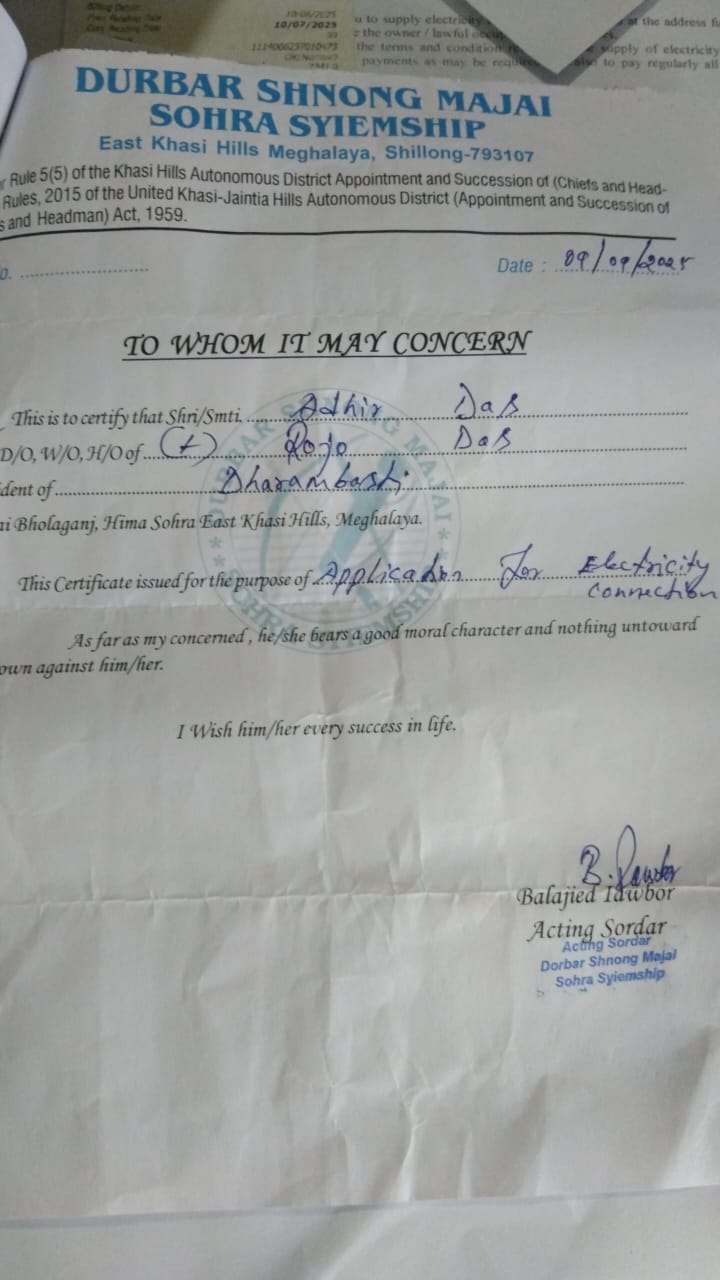 10/06/2025
10/07/2025
u to supply electricity at the address
the owner / lawful
the terms and condition supply of electricity
payments as may be to pay regularly all
DURBAR SHNONG MAJAI
SOHRA SYIEMSHIP
East Khasi Hills Meghalaya, Shillong-793107
Rule 5(5) of the Khasi Hills Autonomous District Appointment and Succession of (Chiefs and Head-
Rules, 2015 of the United Khasi-Jaintia Hills Autonomous District (Appointment and Succession of
s and Headman) Act, 1959.
o. ........................ Date : 09/09/2025
TO WHOM IT MAY CONCERN
This is to certify that Shri/Smti. Adhir Das
D/O, W/O, H/O of (L) Rojo Das
dent of Dharambasti
ai Bholaganj, Hima Sohra East Khasi Hills, Meghalaya.
This Certificate issued for the purpose of Application For Electricity
Connection
As far as my concerned, he/she bears a good moral character and nothing untoward
own against him/her.
I Wish him/her every success in life.
Balajied Iawbor
Acting Sordar
Acting Sordar
Dorbar Shnong Majai
Sohra Syiemship
DURBAR SHNONG MAJAI
SOHRA SYIEMSHIP